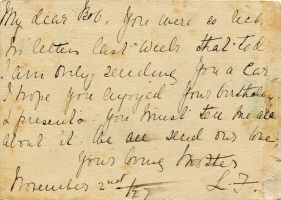 My dear Bob, You were so rich
in letters last week that to
I am only sending you a car
I hope you enjoyed your birthday
& presents. You must tell me all
about it. We all send our love.
Your loving Mother
November 2nd / 27 L. F.